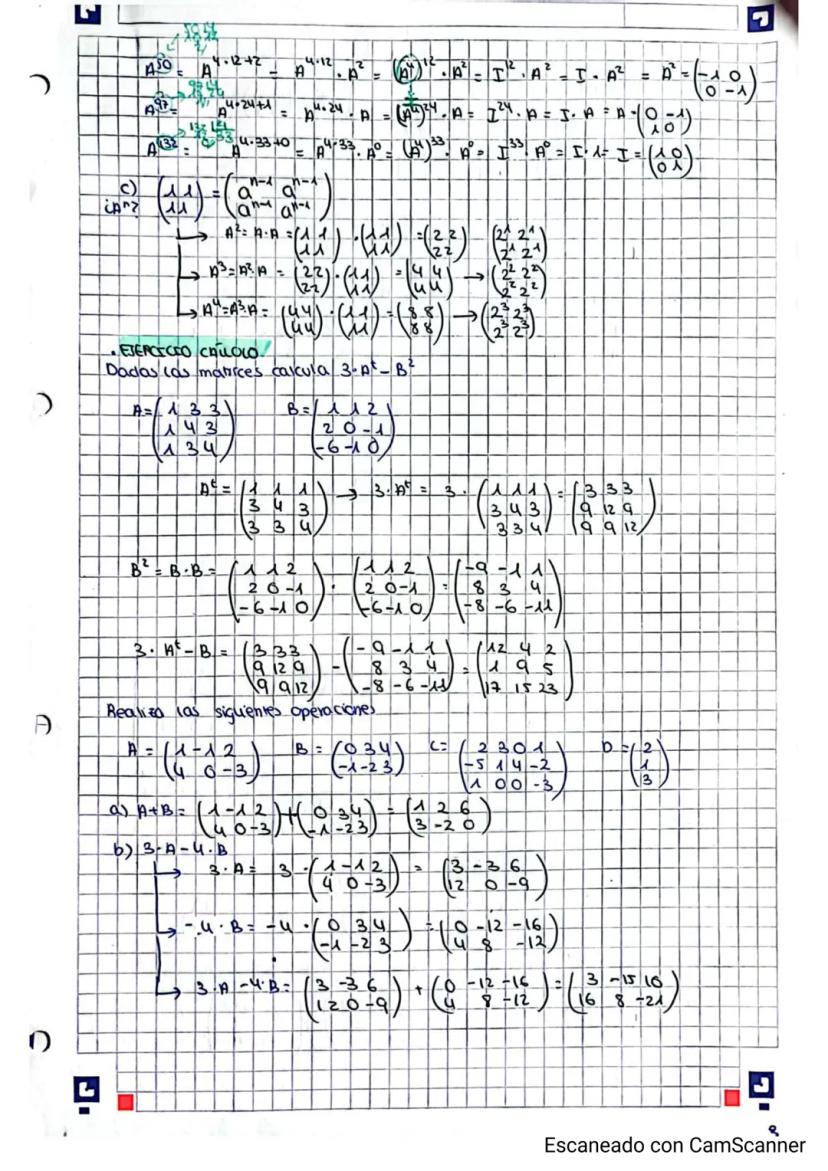 50 4
12
A^50 = A^(4·12+2) = A^(4·12) · A^2 = (A^4)^12 · A^2 = I^12 · A^2 = I · A^2 = A^2 = (-1 0
0 -1)
A^97 = A^(4·24+1) = A^(4·24) · A = (A^4)^24 · A = I^24 · A = I · A = A = (0 -1
1 0)
A^132 = A^(4·33+0) = A^(4·33) · A^0 = (A^4)^33 · A^0 = I^33 · A^0 = I · 1 = I = (1 0
0 1)
c) (1 1
1 1) = (a^(n-1) a^(n-1)
a^(n-1) a^(n-1))
¿A^n?
→ A^2 = A·A = (1 1
1 1) · (1 1
1 1) = (2 2
2 2) (2^1 2^1
2^1 2^1)
→ A^3 = A^2·A = (2 2
2 2) · (1 1
1 1) = (4 4
4 4) → (2^2 2^2
2^2 2^2)
→ A^4 = A^3·A = (4 4
4 4) · (1 1
1 1) = (8 8
8 8) → (2^3 2^3
2^3 2^3)
. EJERCICIO CÁLCULO.
Dadas las matrices calcula 3·A^t - B^2
A = (1 3 3
1 4 3
1 3 4) B = (1 1 2
2 0 -1
-6 -1 0)
A^t = (1 1 1
3 4 3
3 3 4) → 3·A^t = 3 · (1 1 1
3 4 3
3 3 4) = (3 3 3
9 12 9
9 9 12)
B^2 = B·B = (1 1 2
2 0 -1
-6 -1 0) · (1 1 2
2 0 -1
-6 -1 0) = (-9 -1 1
8 3 4
-8 -6 -11)
3 · A^t - B = (3 3 3
9 12 9
9 9 12) - (-9 -1 1
8 3 4
-8 -6 -11) = (12 4 2
1 9 5
17 15 23)
Realiza las siguientes operaciones
A = (1 -1 2
4 0 -3) B = (0 3 4
-1 -2 3) C = (2 3 0 1
-5 1 4 -2
1 0 0 -3) D = (2
1
3)
a) A+B = (1 -1 2
4 0 -3) + (0 3 4
-1 -2 3) = (1 2 6
3 -2 0)
b) 3·A - 4·B
→ 3·A = 3 · (1 -1 2
4 0 -3) = (3 -3 6
12 0 -9)
→ -4·B = -4 · (0 3 4
-1 -2 3) = (0 -12 -16
4 8 -12)
→ 3·A - 4·B = (3 -3 6
12 0 -9) + (0 -12 -16
4 8 -12) = (3 -15 10
16 8 -21)
Escaneado con CamScanner